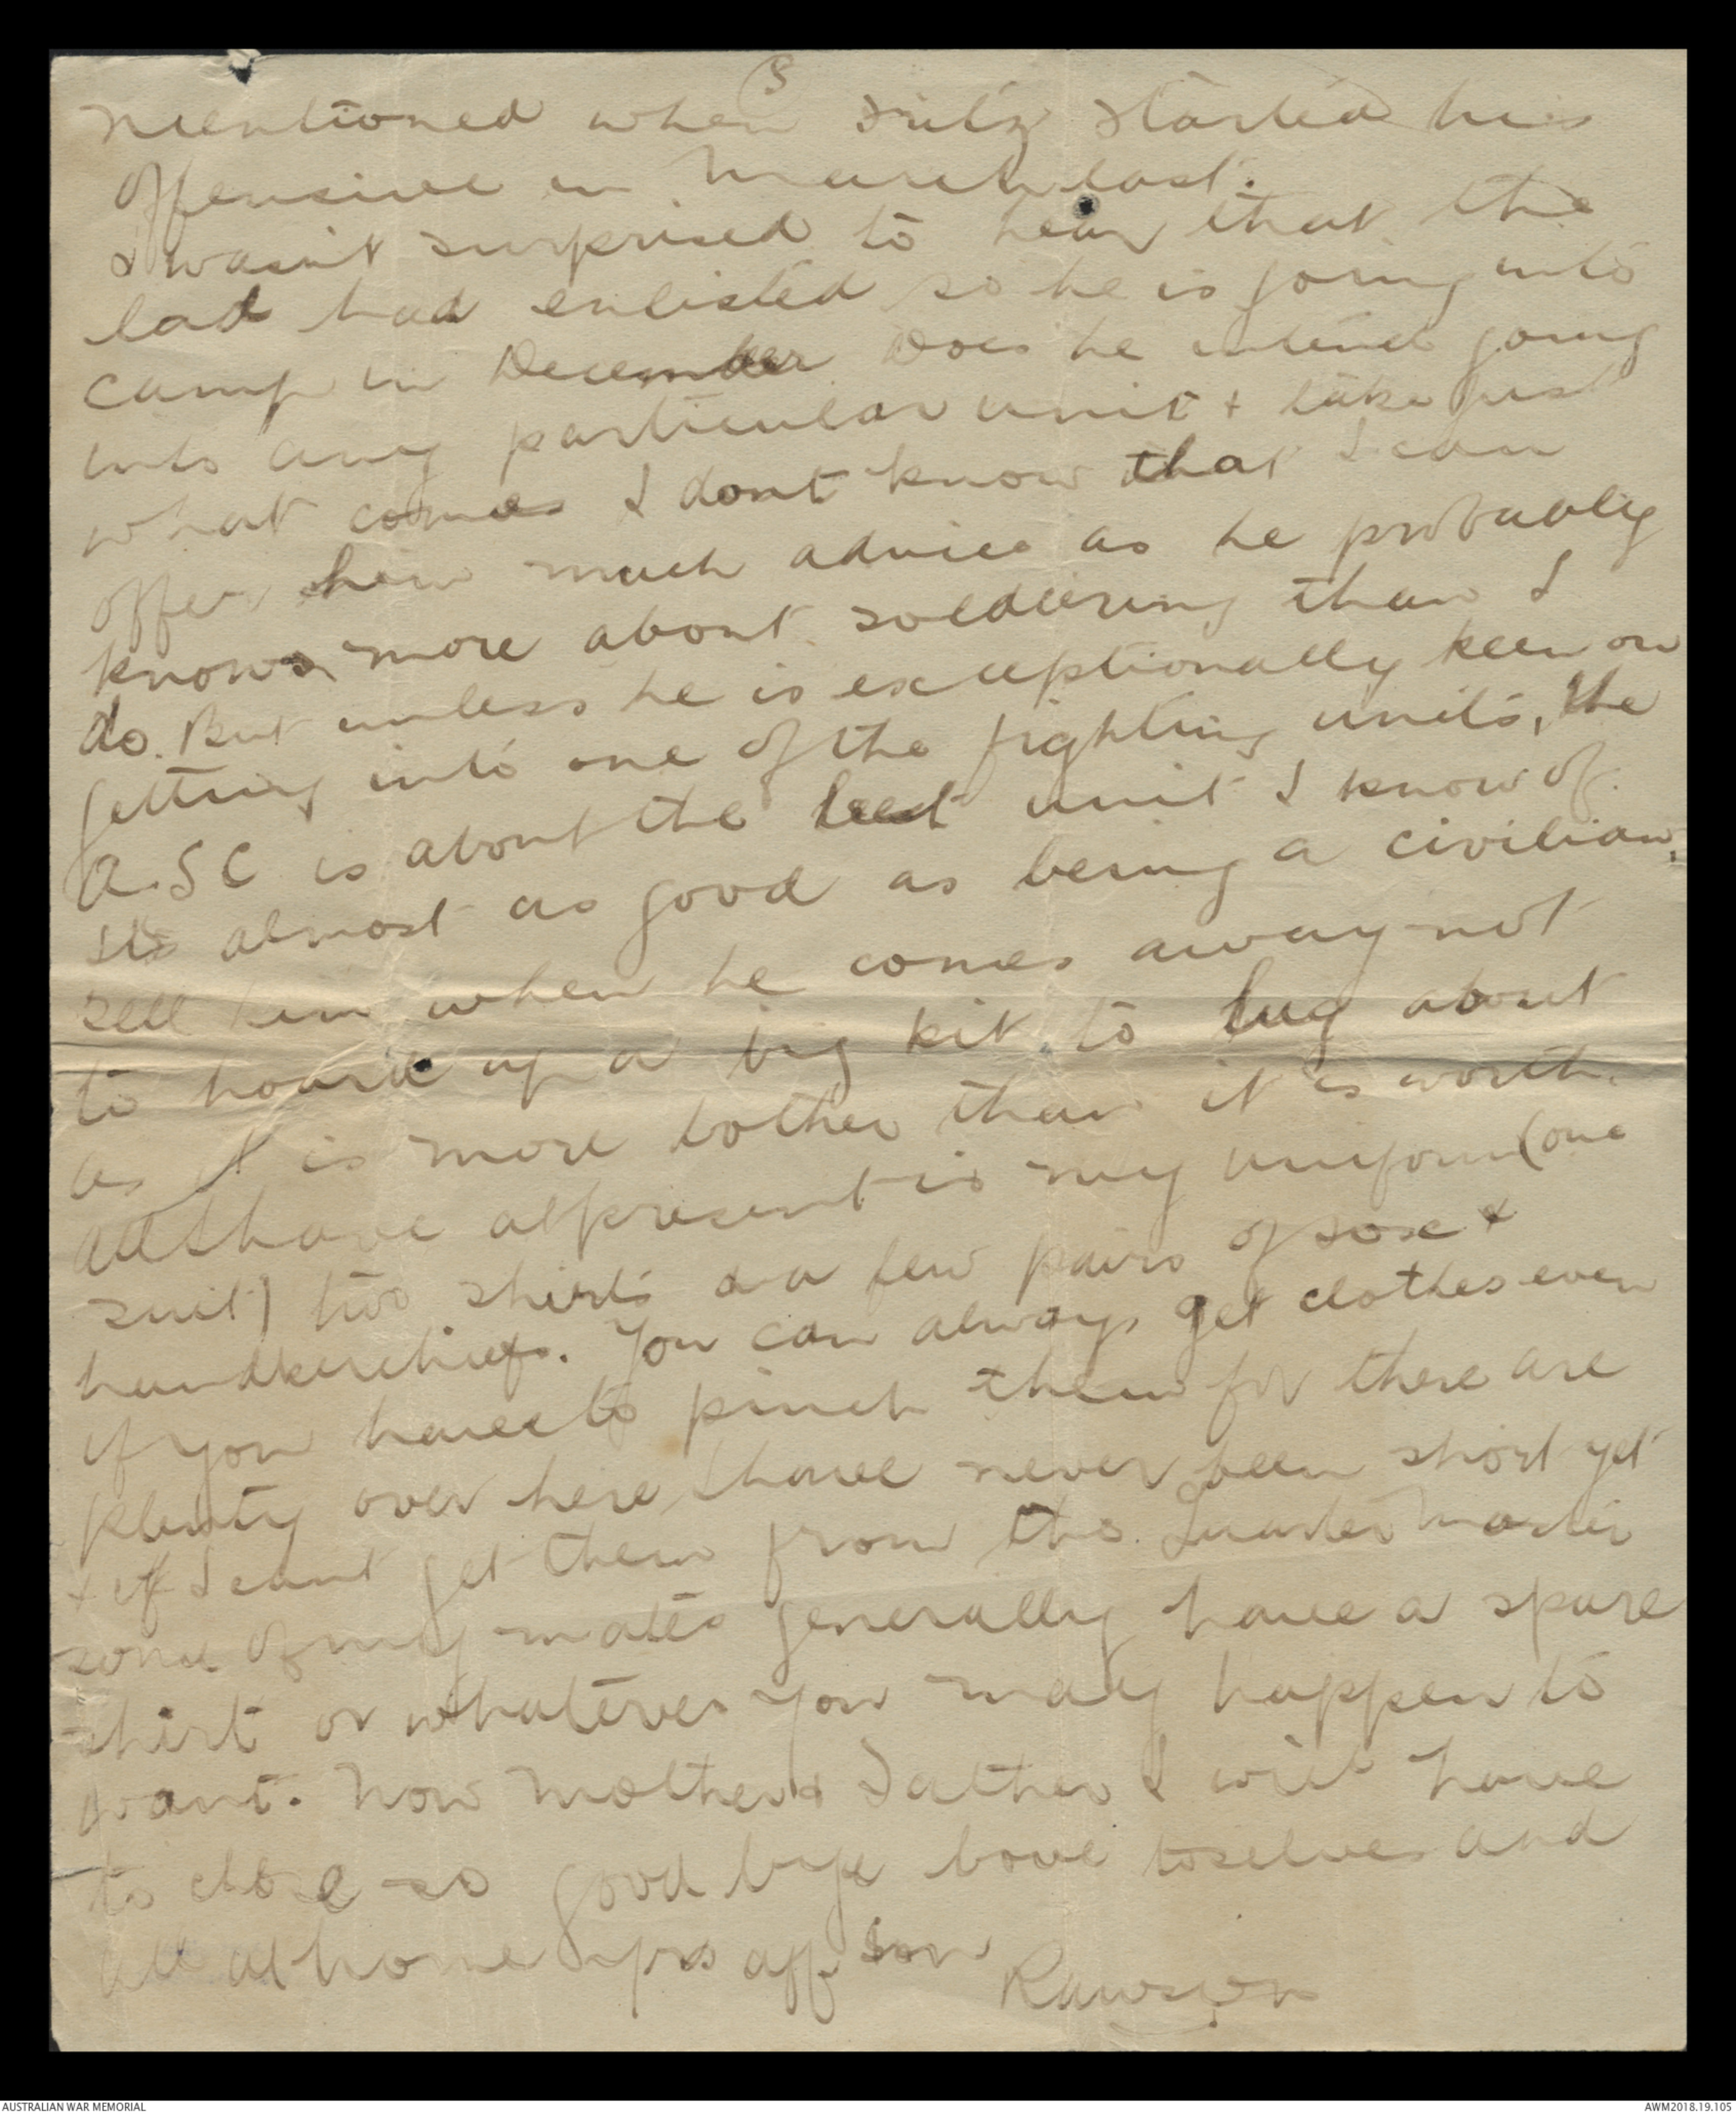 8
mentioned when Fritz started his
offensive in March last.
I wasn't surprised to hear that the
lad had enlisted so he is going into
camp in December Does he intend going
into any particular unit + take just
what comes I dont know that I can
offer him much advice as he probably
knows more about soldiering than I
do. But unless he is exceptionally keen on
getting into one of the fighting units, the
A.S C is about the best unit I know of.
Its almost as good as being a civilian.
Tell him when he comes away not
to hoard up a big kit to lug about
as it is more bother than it is worth.
All I have at present is my uniform (one
suit) two shirts & a few pairs of sox &
handkerchiefs. You can always get clothes even
if you have to pinch them for there are
plenty over here, I have never been short yet
& if I cant get them from the Quarter Master
some of my mates generally have a spare
shirt or whatever you may happen to
want. Now Mother & Father I will have
to close so good bye love to selves and
all at home yrs aff son
Rawson
AUSTRALIAN WAR MEMORIAL
AWM2018.19.105